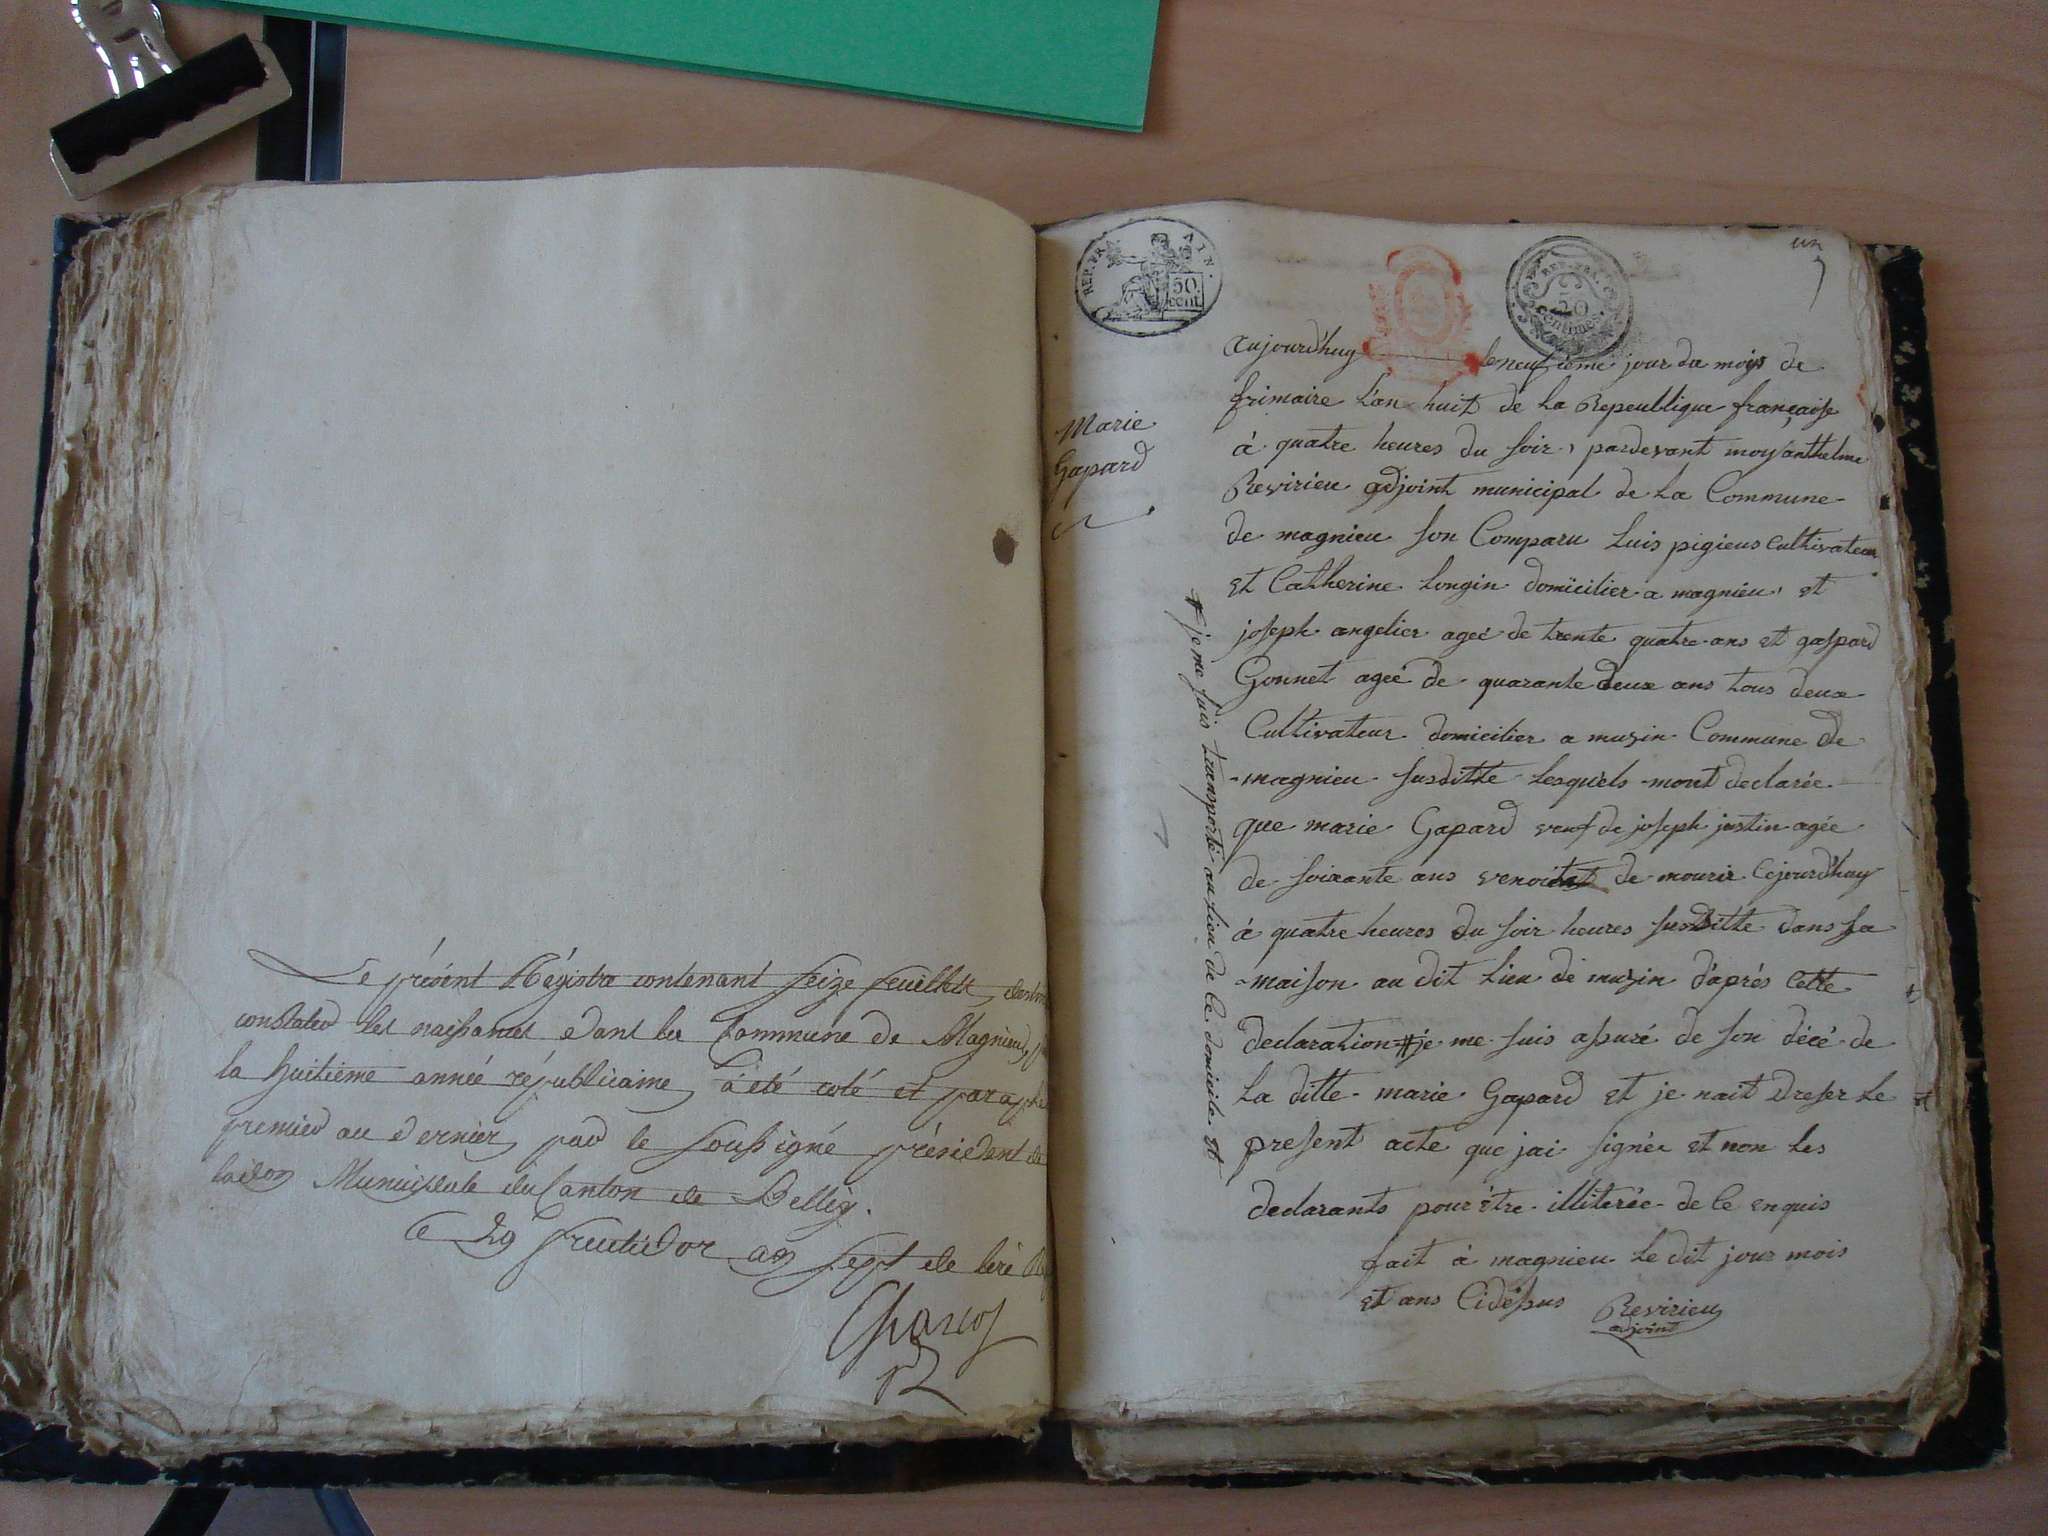 Le présent Régistre contenant seize feuillets
constater les naissances dans la Commune de Magnieu
la huitième année républicaine, à été coté et paraphé
premier au dernier par le soussigné président de
Municipale du Canton de Belley.
Ce 29 fructidor an sept de l'ère
REP. FRA. AIN.
50 cent.
REP. FRA.
50
centimes.
un
Marie
Gapard
aujourd'huy le neufieme jour du mois de
frimaire l'an huit de la Repeublique française
à quatre heures du soir, pardevant moy anthelme
Revirieu adjoint municipal de la Commune
de magnieu son Comparu Luis pigieus Cultivateur
et Catherine Longin domicilier a magnieu, et
joseph angelier ageé de trente quatre ans et gaspard
Gonnet ageé de quarante deux ans tous deux
Cultivateur domicilier a muzin Commune de
magnieu susditte lesquels mont declarée
que marie Gapard veuf de joseph justin agée
de soixante ans venoit de mourir Cejourd'huy
à quatre heures du soir heures susditte dans sa
maison au dit Lieu de muzin d'après Cette
declaration # je me suis assuré de son décé de
La ditte marie Gapard et je nait dreser le
present acte que jai signée et non les
declarants pour être illiterée de Ce enquis
fait à magnieu le dit jour mois
et ans Cidessus Revirieu
adjoint
# je me suis transporté au lieu de Ce domicile et